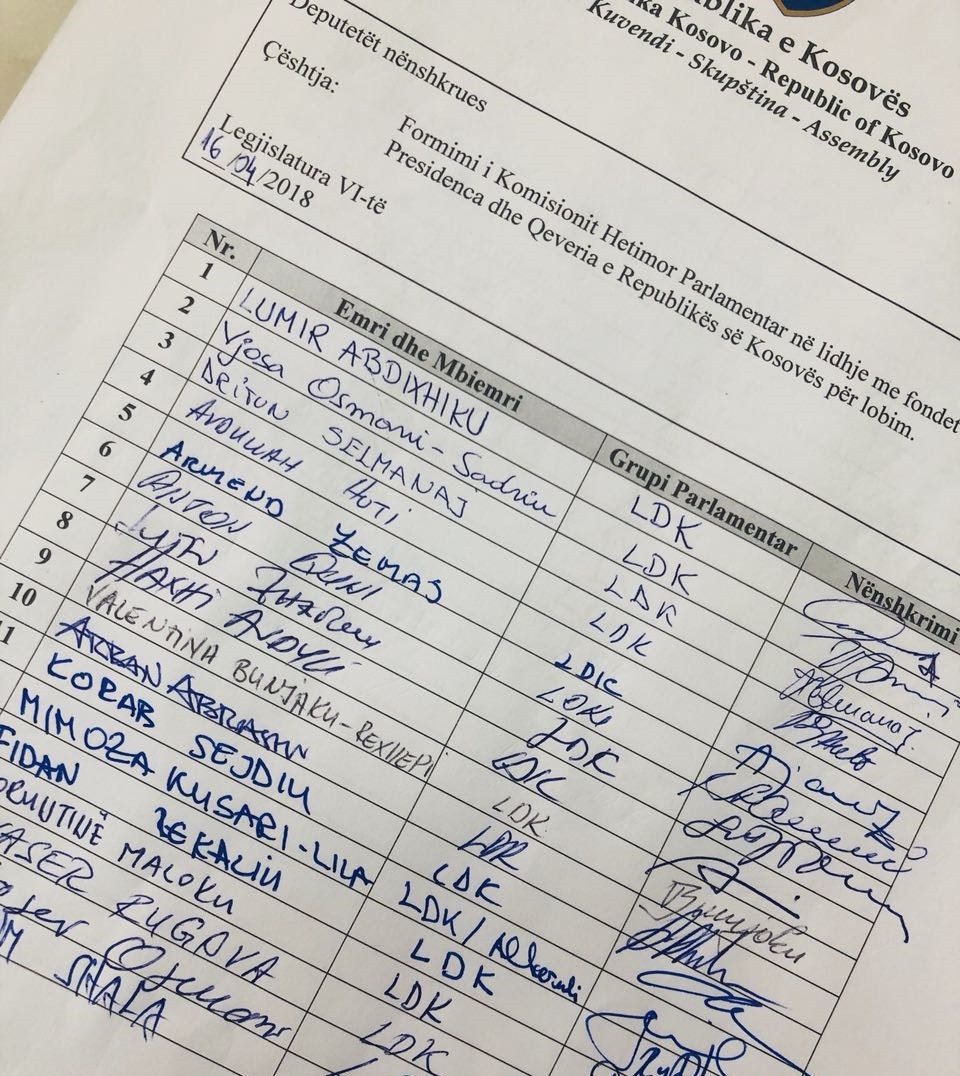 blika e Kosovës
ika Kosovo - Republic of Kosovo
Kuvendi - Skupština - Assembly
Deputetët nënshkrues
Çështja:
Formimi i Komisionit Hetimor Parlamentar në lidhje me fondet
Presidenca dhe Qeveria e Republikës së Kosovës për lobim.
Legjislatura VI-të
16/04/2018
Nr. Emri dhe Mbiemri Grupi Parlamentar Nënshkrimi
1 LUMIR ABDIXHIKU LDK
2 Vjosa Osmani-Sadriu LDK
3 DRITON SELMANAJ LDK
4 AVDULLAH HOTI LDK
5 ARMEND ZEMAJ LDK
6 ANTON QUNI LDK
7 LDK
8 HAXHI AVDYLI LDK
9 VALENTINA BUNJAKU-REXHEPI LDK
10 ARBAN ABRASHI LDK
11 KORAB SEJDIU LDK
MIMOZA KUSARI-LILA LDK/Alternativa
FIDAN REKALIU LDK
MALOKU LDK
RUGOVA LDK
SHALA